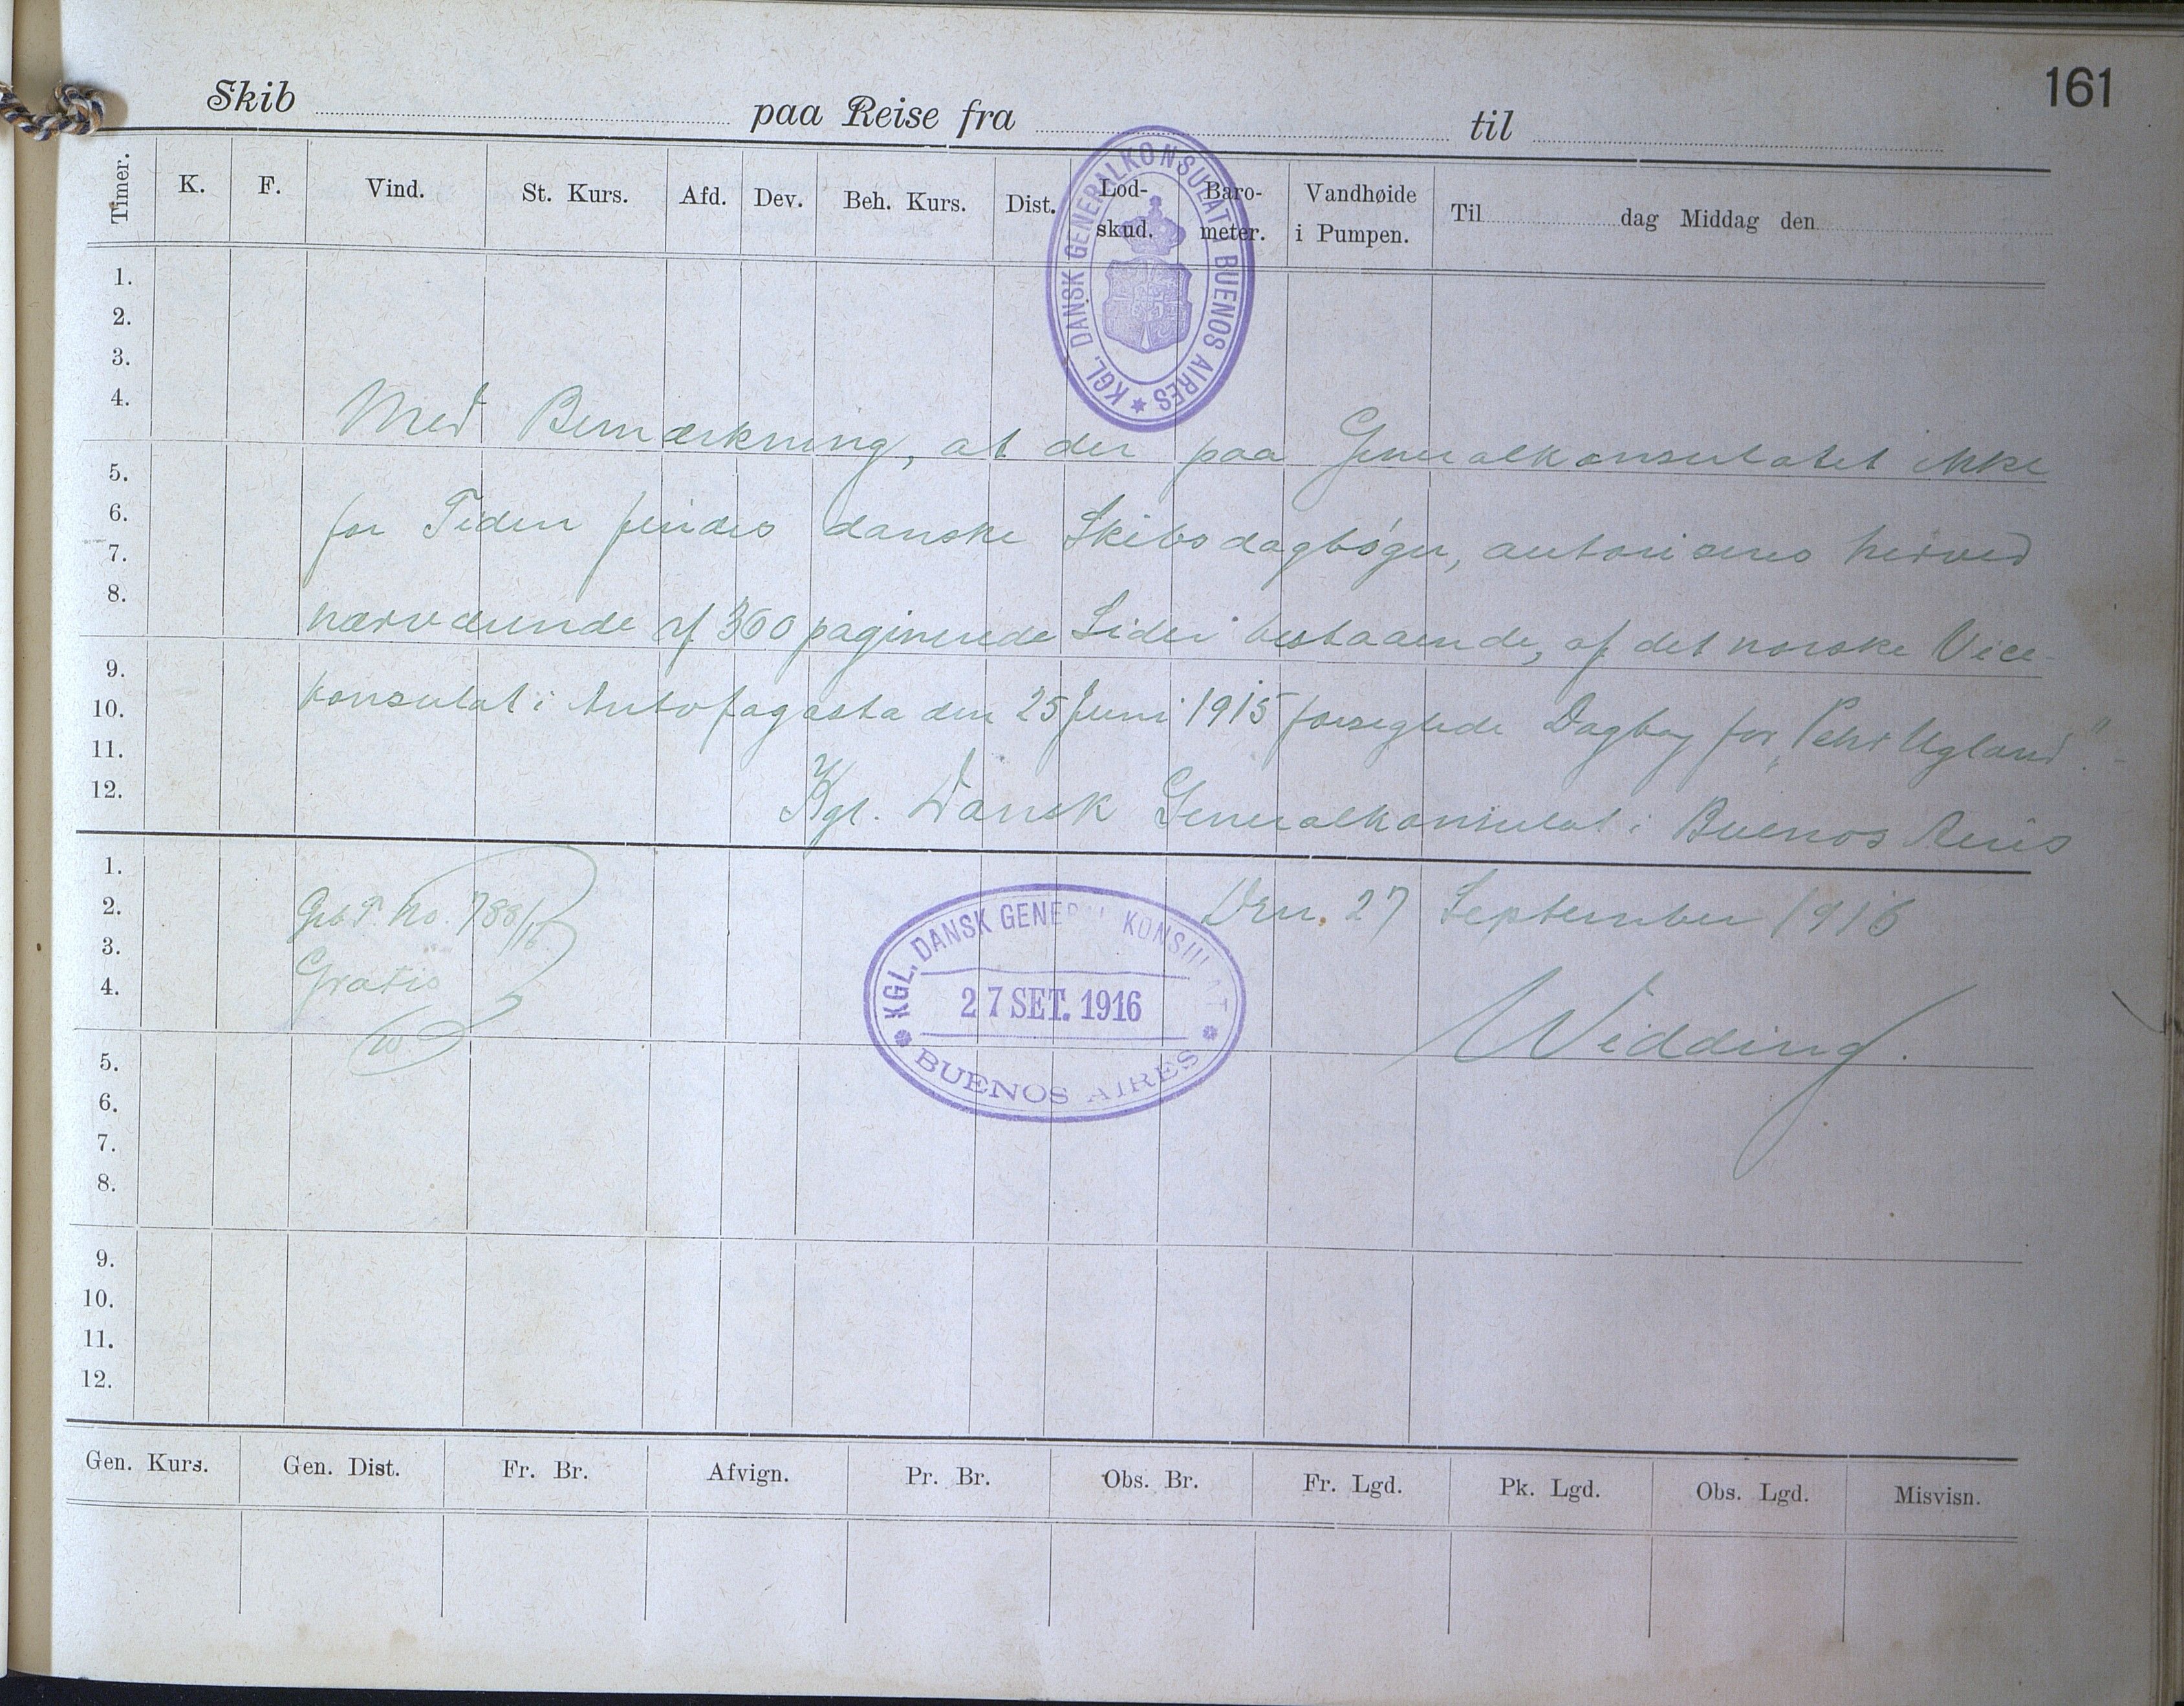 161
Skib paa Reise fra til
Timer. K. F. Vind. St. Kurs. Afd. Dev. Beh. Kurs. Dist. Lod-skud. Baro-meter. Vandhøide i Pumpen. Til dag Middag den
KGL. DANSK GENERALKONSULAT I BUENOS AIRES
1.
2.
3.
4.
Med Bemærkning, at der paa Generalkonsulatet ikke
5.
6.
for Tiden findes danske Skibsdagbøger, autoriseres herved
7.
8.
nærværende af 360 paginerede Sider bestaaende, af det norske Vice-
9.
10.
konsulat i Antofagasta den 25 Juni 1915 forseglede Dagbog for "Pehr Ugland".-
11.
12.
Kgl. Dansk Generalkonsulat i Buenos Aires
1.
2.
Den. 27 September 1916
No. 788/16
3.
4.
Gratis
W
KGL. DANSK GENERAL KONSULAT
27 SET. 1916
BUENOS AIRES
Widding.
5.
6.
7.
8.
9.
10.
11.
12.
Gen. Kurs. Gen. Dist. Fr. Br. Afvign. Pr. Br. Obs. Br. Fr. Lgd. Pk. Lgd. Obs. Lgd. Misvisn.